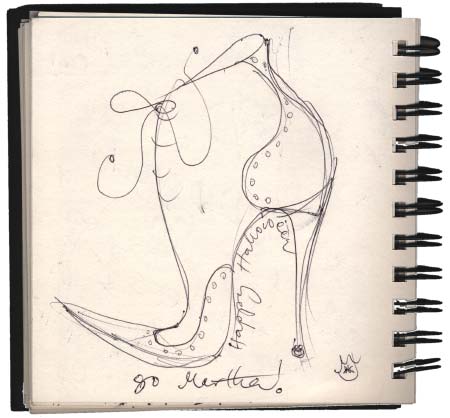 Happy Halloween
go Martha!